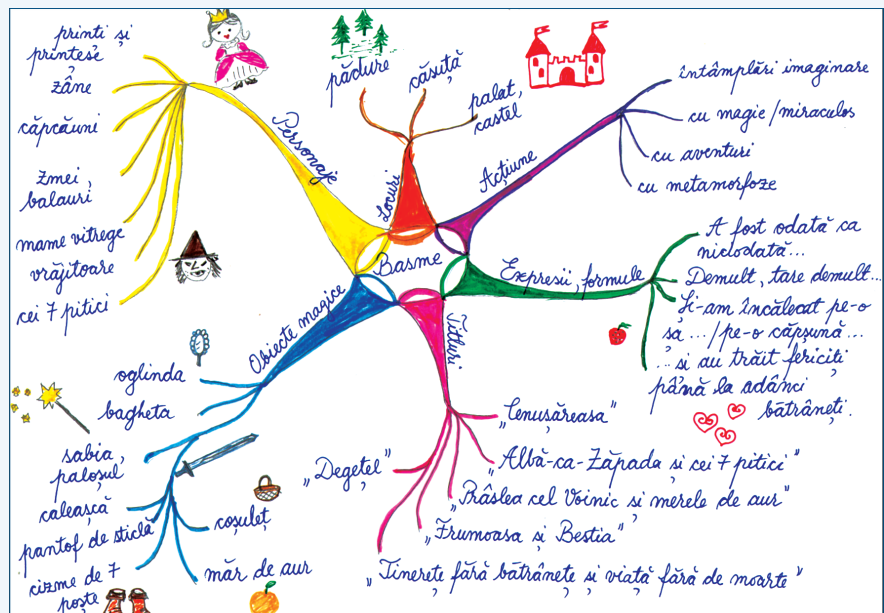 Basme
Personaje
prinți și
prințese
zâne
căpcăuni
zmei,
balauri
mame vitrege
vrăjitoare
cei 7 pitici
Locuri
pădure
căsuță
palat,
castel
Acțiune
întâmplări imaginare
cu magie/miraculos
cu aventuri
cu metamorfoze
Expresii, formule
A fost odată ca
niciodată...
Demult, tare demult...
Și-am încălecat pe-o
șa.../pe-o căpșună...
...și au trăit fericiți
până la adânci
bătrâneți.
Titluri
„Cenușăreasa"
„Albă-ca-Zăpada și cei 7 pitici"
„Prâslea cel Voinic și merele de aur"
„Frumoasa și Bestia"
„Tinerețe fără bătrânețe și viață fără de moarte"
„Degețel"
Obiecte magice
oglinda
bagheta
sabia,
paloșul
caleașcă
pantof de sticlă
cizme de 7
poște
coșuleț
măr de aur